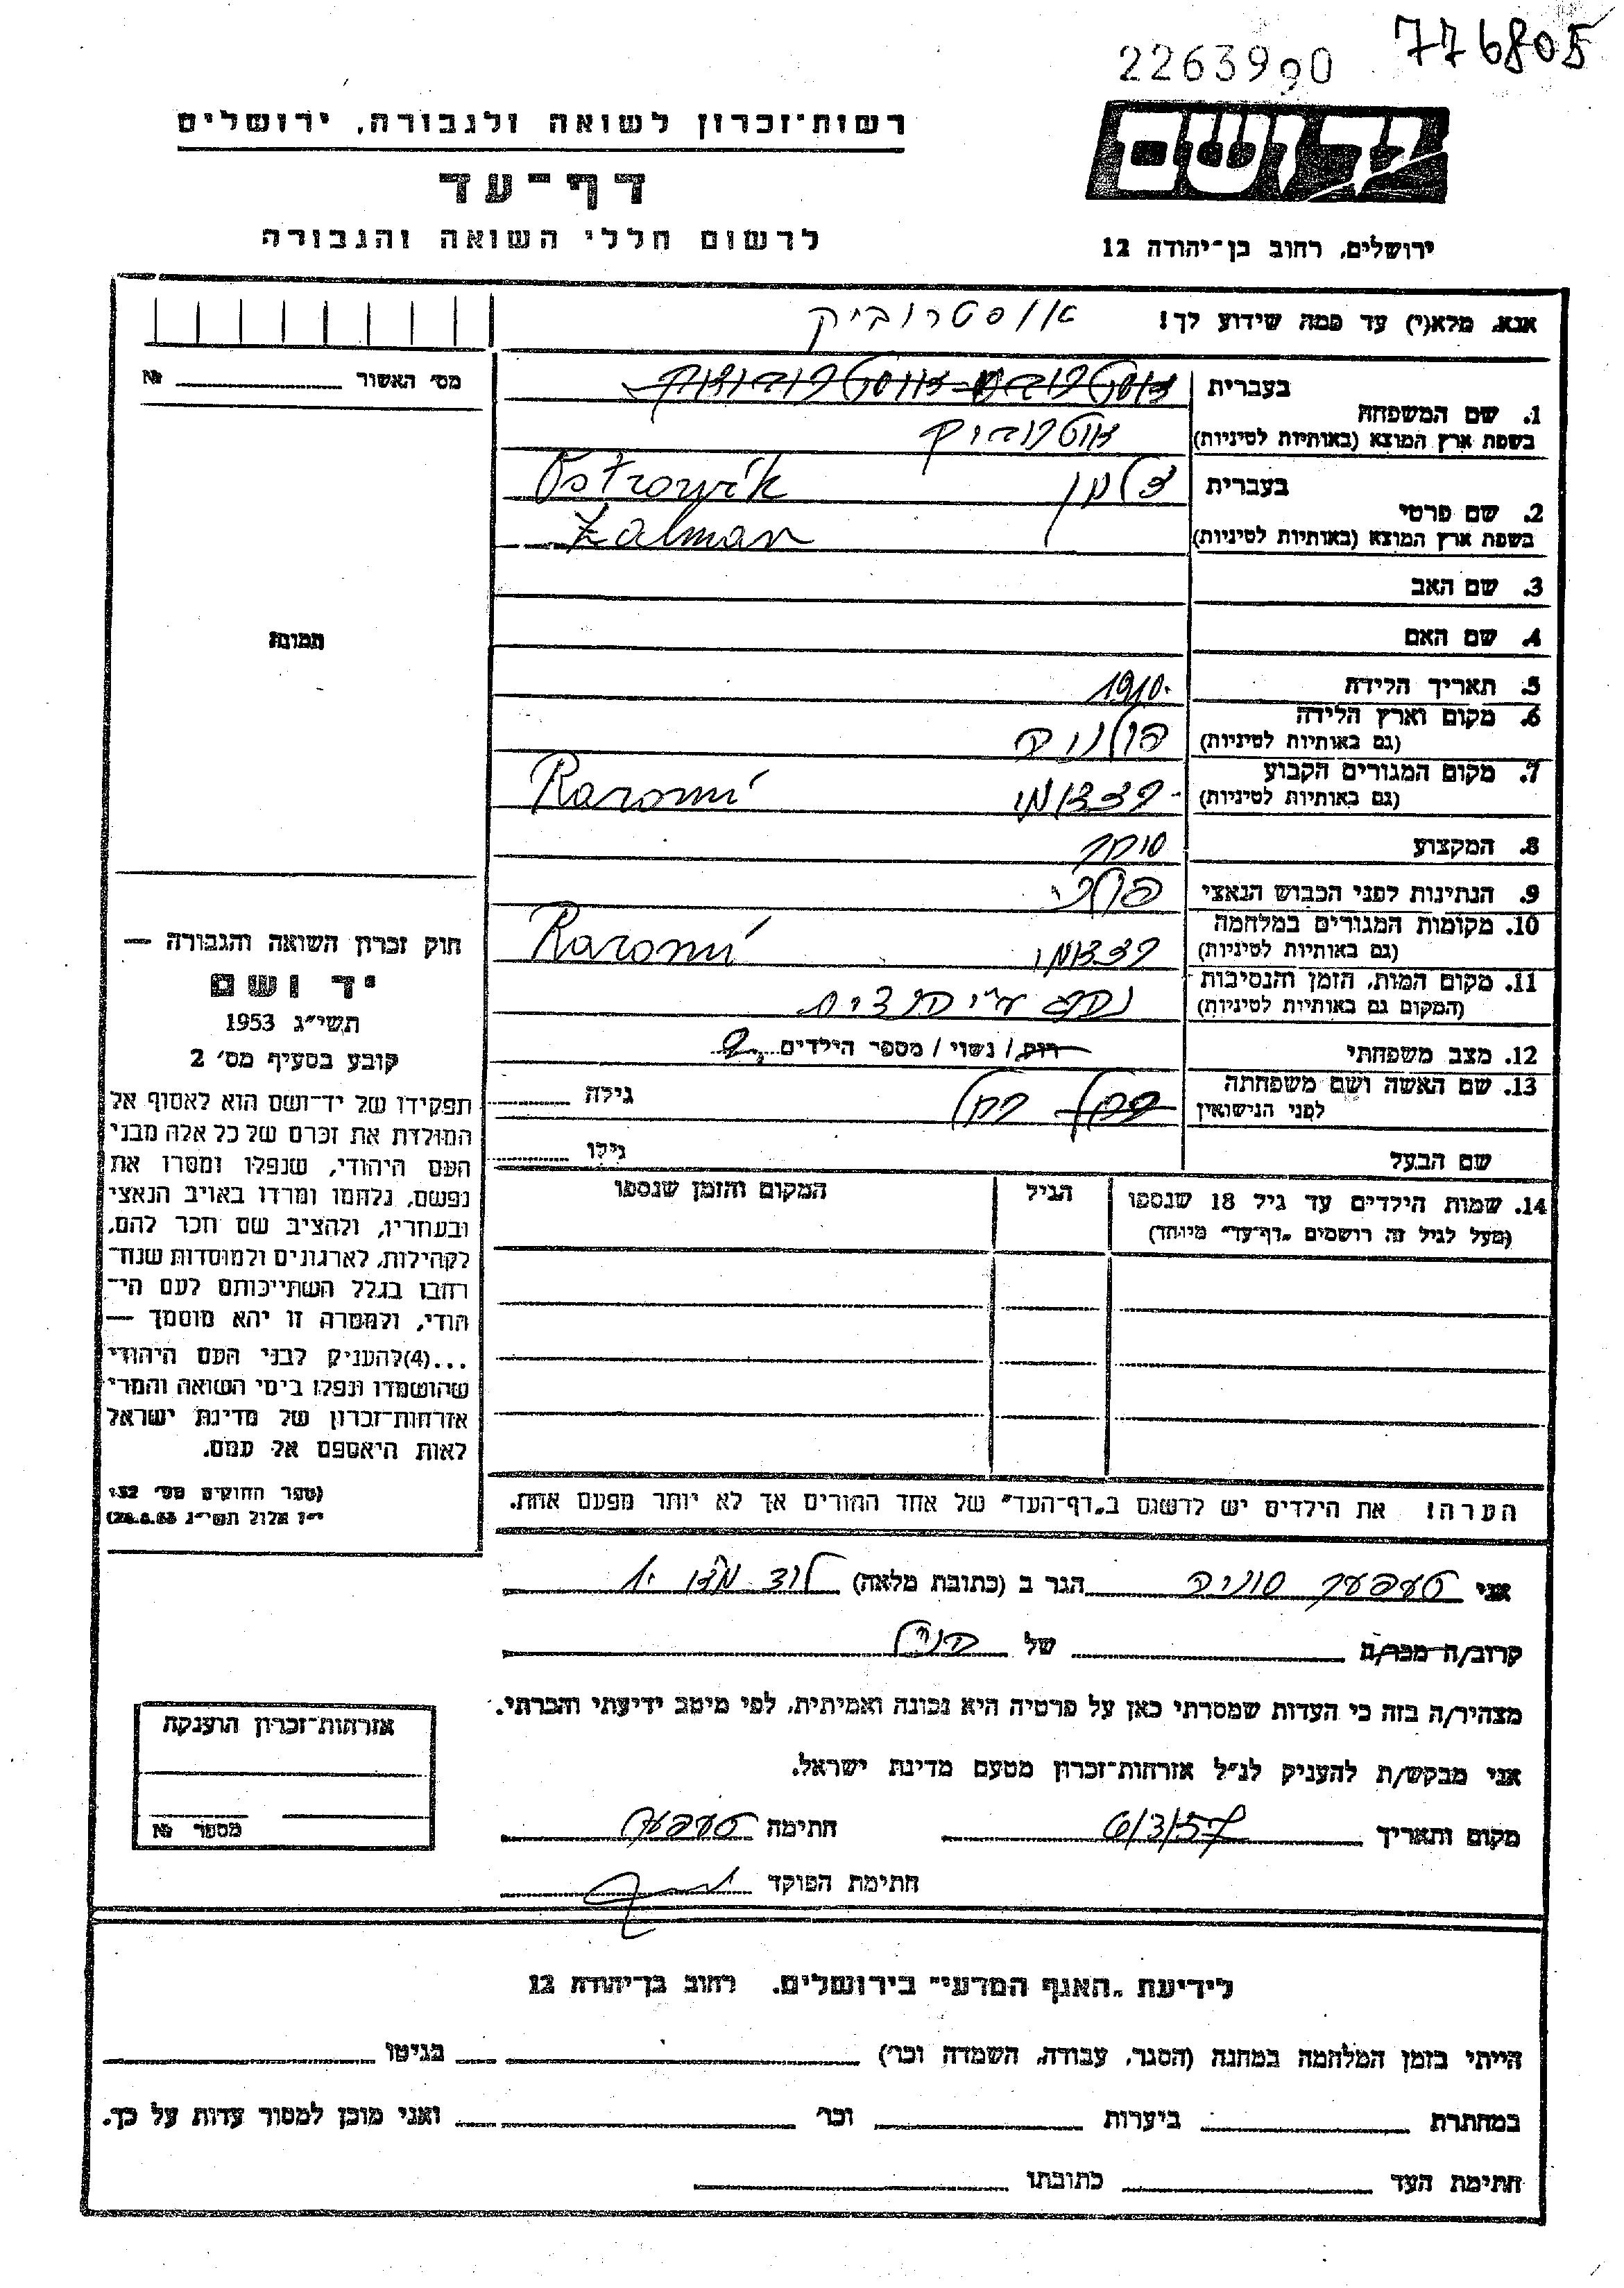 776805
2263990
יד ושם
רשות־זכרון לשואה ולגבורה, ירושלים
דף־עד
לרשום חללי השואה והגבורה
ירושלים, רחוב בן־יהודה 12
אנא, מלא(י) עד כמה שידוע לך! אוסטרוביק
מס׳ האשור №
בעברית
1. שם המשפחה
בשפת ארץ המוצא (באותיות לטיניות)
Ostrowik
בעברית זלמן
2. שם פרטי
בשפת ארץ המוצא (באותיות לטיניות) Zalman
3. שם האב
4. שם האם
תמונה
5. תאריך הלידה 1910
6. מקום וארץ הלידה
(גם באותיות לטיניות)
7. מקום המגורים הקבוע
(גם באותיות לטיניות)
8. המקצוע סוחר
9. הנתינות לפני הכבוש הנאצי פולני
10. מקומות המגורים במלחמה
(גם באותיות לטיניות)
11. מקום המות, הזמן והנסיבות
(המקום גם באותיות לטיניות)
12. מצב משפחתי רוק / נשוי / מספר הילדים 2
13. שם האשה ושם משפחתה גילה
לפני הנישואין רחל
שם הבעל גילו
14. שמות הילדים עד גיל 18 שנספו הגיל המקום והזמן שנספו
(מעל לגיל זה רושמים „דף־עד״ מיוחד)
חוק זכרון השואה והגבורה —
יד ושם
תשי״ג 1953
קובע בסעיף מס׳ 2
תפקידו של יד־ושם הוא לאסוף אל
המולדת את זכרם של כל אלה מבני
העם היהודי, שנפלו ומסרו את
נפשם, נלחמו ומרדו באויב הנאצי
ובעוזריו, ולהציב שם וזכר להם,
לקהילות, לארגונים ולמוסדות שנח־
רבו בגלל השתייכותם לעם הי־
הודי, ולמטרה זו יהא מוסמך —
...(4)להעניק לבני העם היהודי
שהושמדו ונפלו בימי השואה והמרי
אזרחות־זכרון של מדינת ישראל
לאות היאספם אל עמם.
(ספר החוקים מס׳ 132,
י״ז אלול תשי״ג 28.8.53)
הערה! את הילדים יש לרשום ב„דף־העד״ של אחד ההורים אך לא יותר מפעם אחת.
אני סוניה הגר ב (כתובת מלאה) לוד
קרוב/ה מכר/ה של הנ״ל
מצהיר/ה בזה כי העדות שמסרתי כאן על פרטיה היא נכונה ואמיתית, לפי מיטב ידיעתי והכרתי.
אני מבקש/ת להעניק לנ״ל אזרחות־זכרון מטעם מדינת ישראל.
מקום ותאריך 6/3/57 חתימה
חתימת הפוקד
אזרחות־זכרון הוענקה
מספר №
לידיעת „האגף המדעי״ בירושלים. רחוב בן־יהודה 12
הייתי בזמן המלחמה במחנה (הסגר, עבודה, השמדה וכו׳) בגיטו
במחתרת ביערות וכו׳ ואני מוכן למסור עדות על כך.
חתימת העד כתובתו